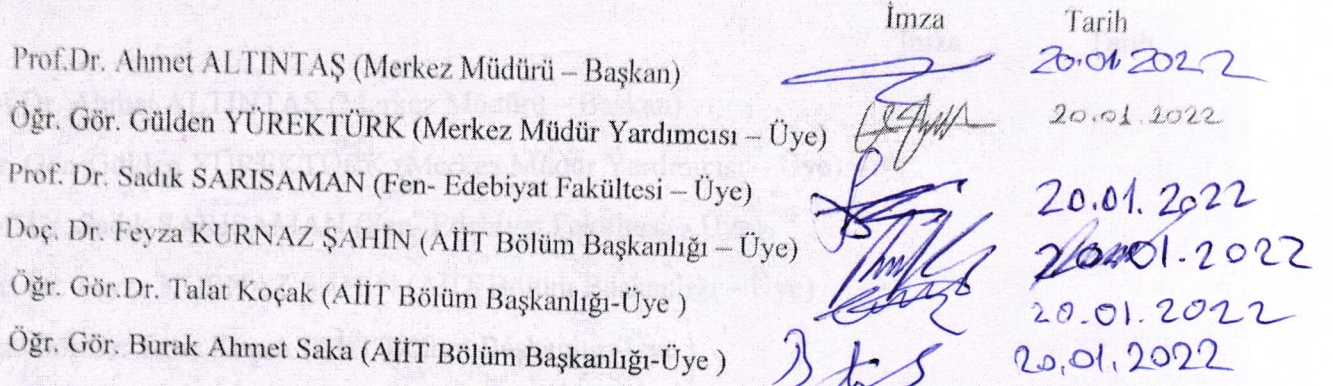 İmza Tarih
Prof.Dr. Ahmet ALTINTAŞ (Merkez Müdürü – Başkan) 20.01.2022
Öğr. Gör. Gülden YÜREKTÜRK (Merkez Müdür Yardımcısı – Üye) 20.01.2022
Prof. Dr. Sadık SARISAMAN (Fen- Edebiyat Fakültesi – Üye) 20.01.2022
Doç. Dr. Feyza KURNAZ ŞAHİN (AİİT Bölüm Başkanlığı – Üye) 20.01.2022
Öğr. Gör.Dr. Talat Koçak (AİİT Bölüm Başkanlığı-Üye ) 20.01.2022
Öğr. Gör. Burak Ahmet Saka (AİİT Bölüm Başkanlığı-Üye ) 20.01.2022